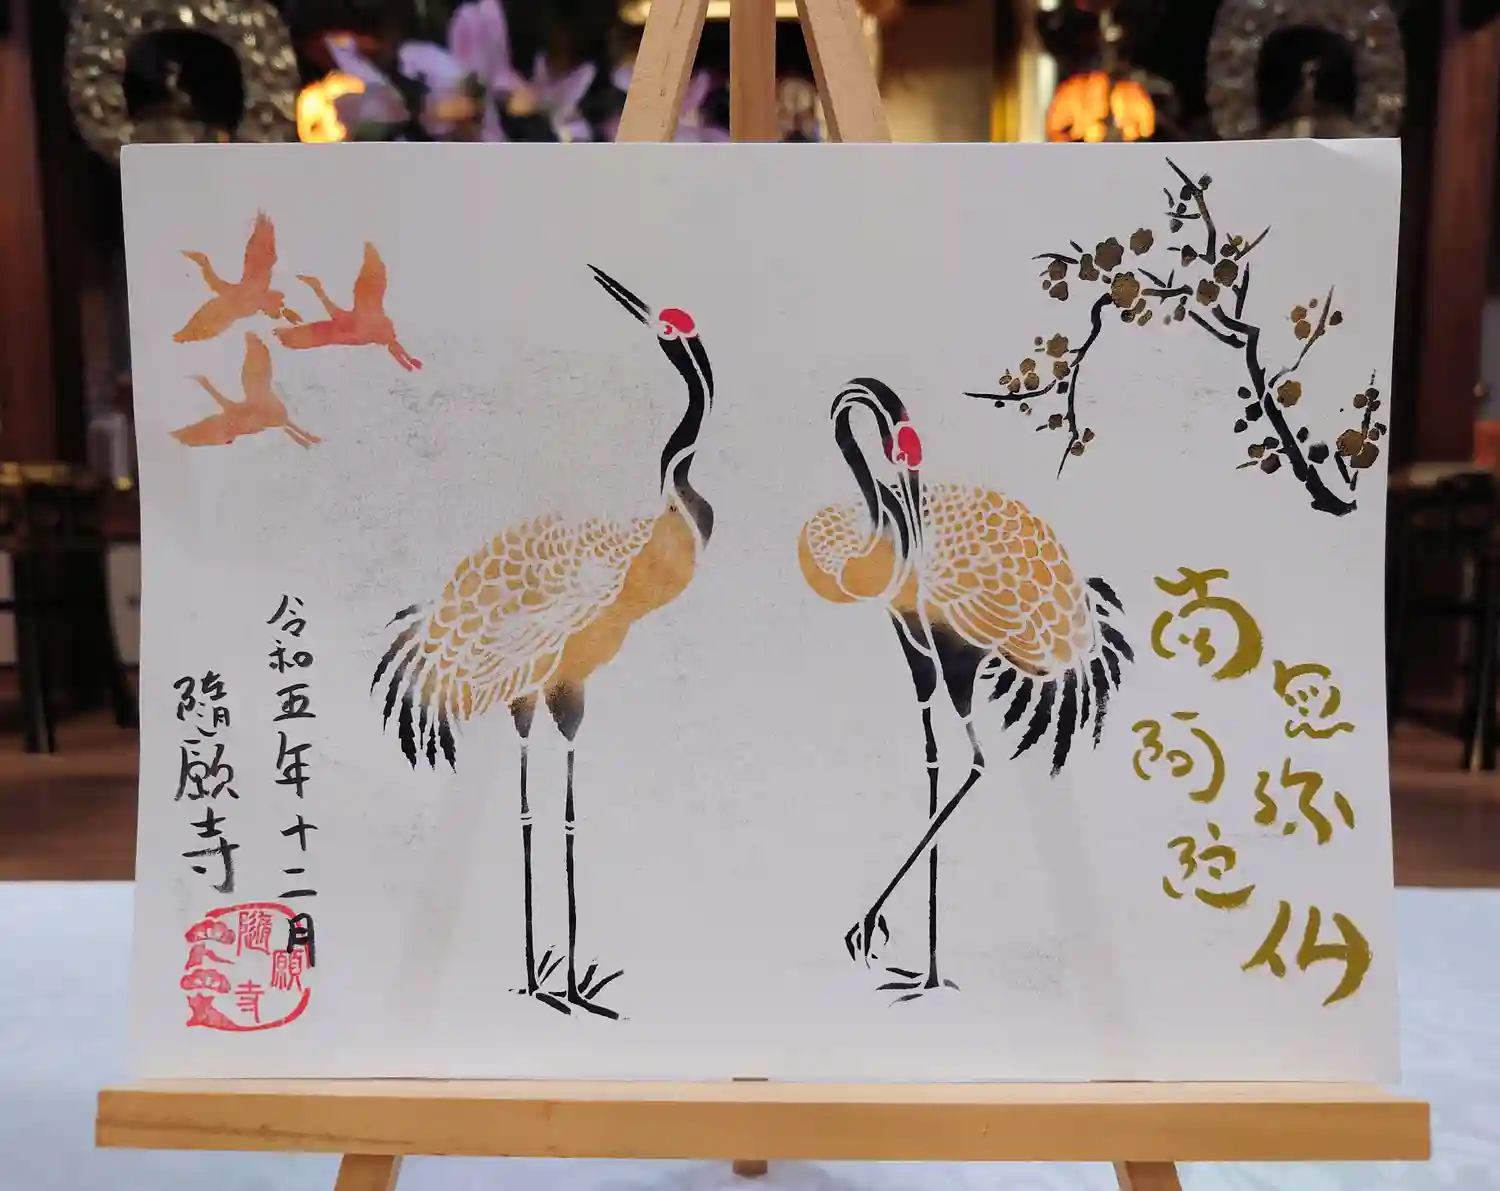 南無阿弥陀仏
令和五年十二月
隨願寺
隨願寺